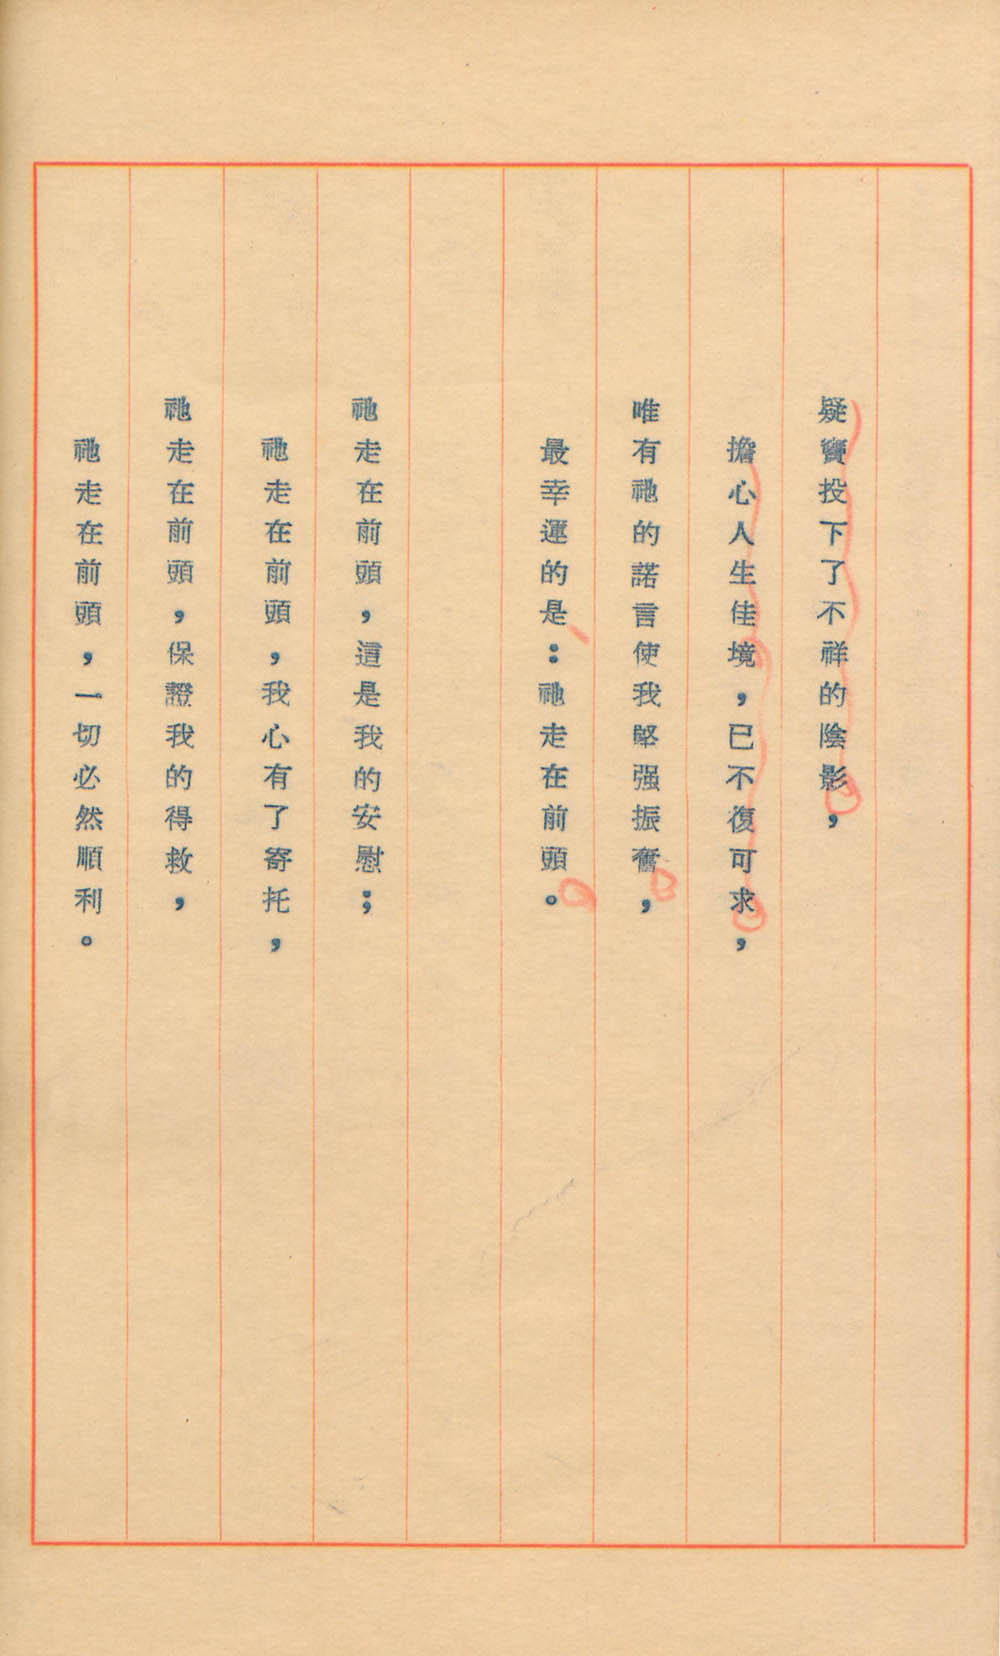 疑竇投下了不祥的陰影，
擔心人生佳境，已不復可求，
唯有祂的諾言使我堅强振奮，
最幸運的是：祂走在前頭。
祂走在前頭，這是我的安慰；
祂走在前頭，我心有了寄托，
祂走在前頭，保證我的得救，
祂走在前頭，一切必然順利。